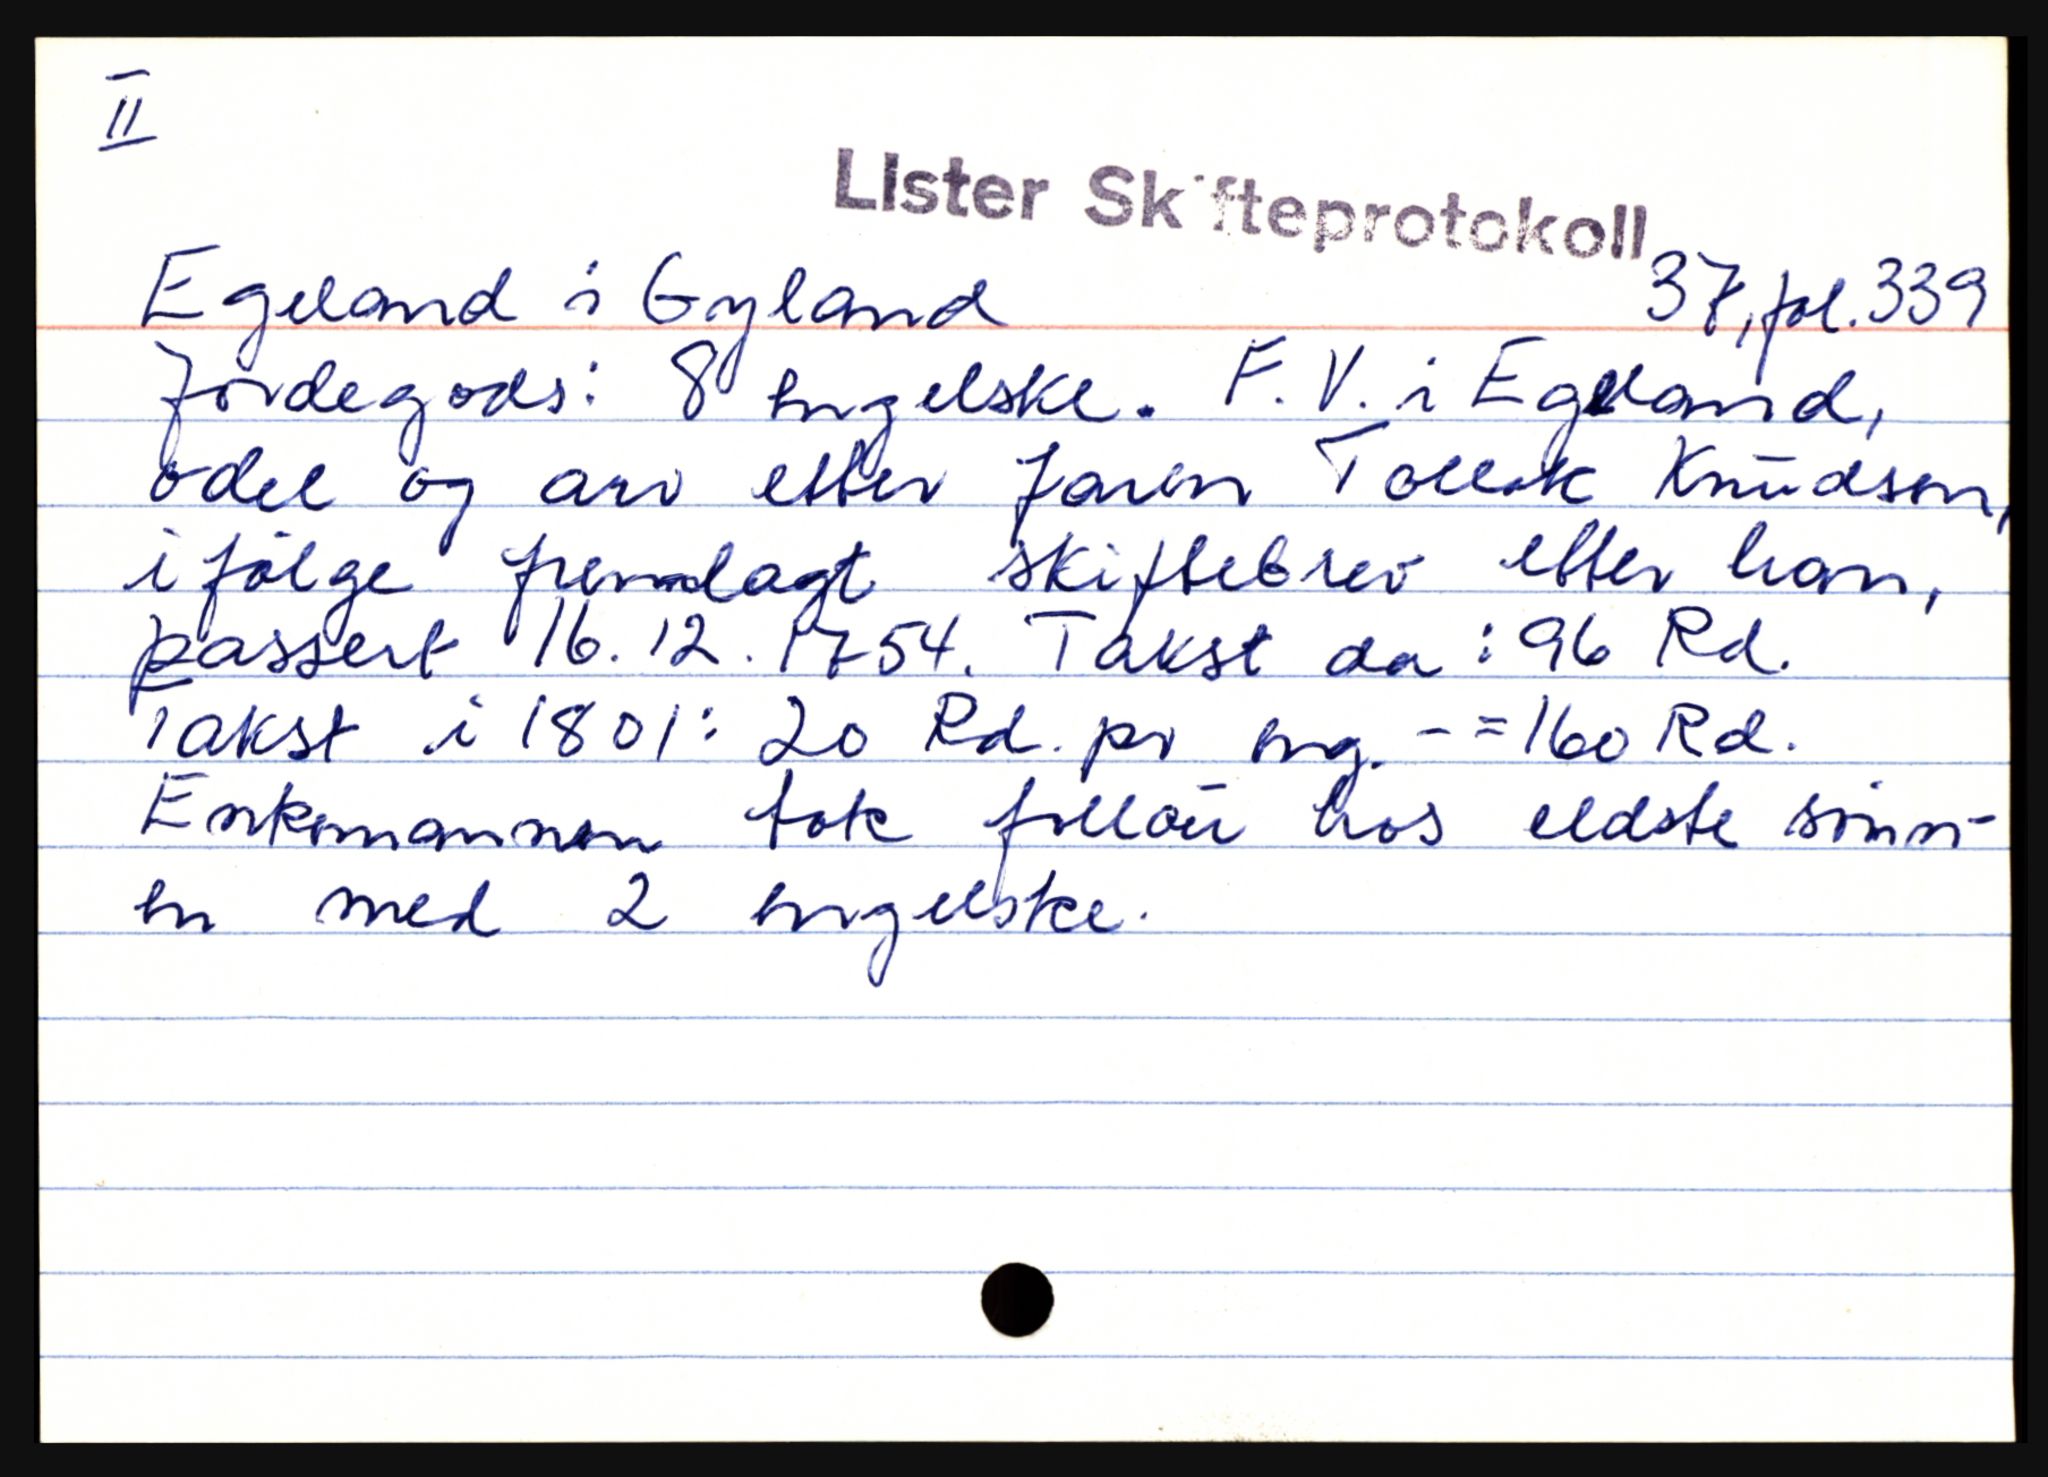 II
Lister Skifteprotokoll
Egeland i Gyland 37, fol. 339
Jordegods: 8 engelske. F. V. i Egeland,
odel og arv etter faren Tollak Knudsen,
ifølge fremlagt skiftebrev etter han,
passert 16.12.1754. Takst da : 96 Rd.
Takst i 1801: 20 Rd. pr eng. - = 160 Rd.
Enkemannen tok follau hos eldste sønn-
en med 2 engelske.